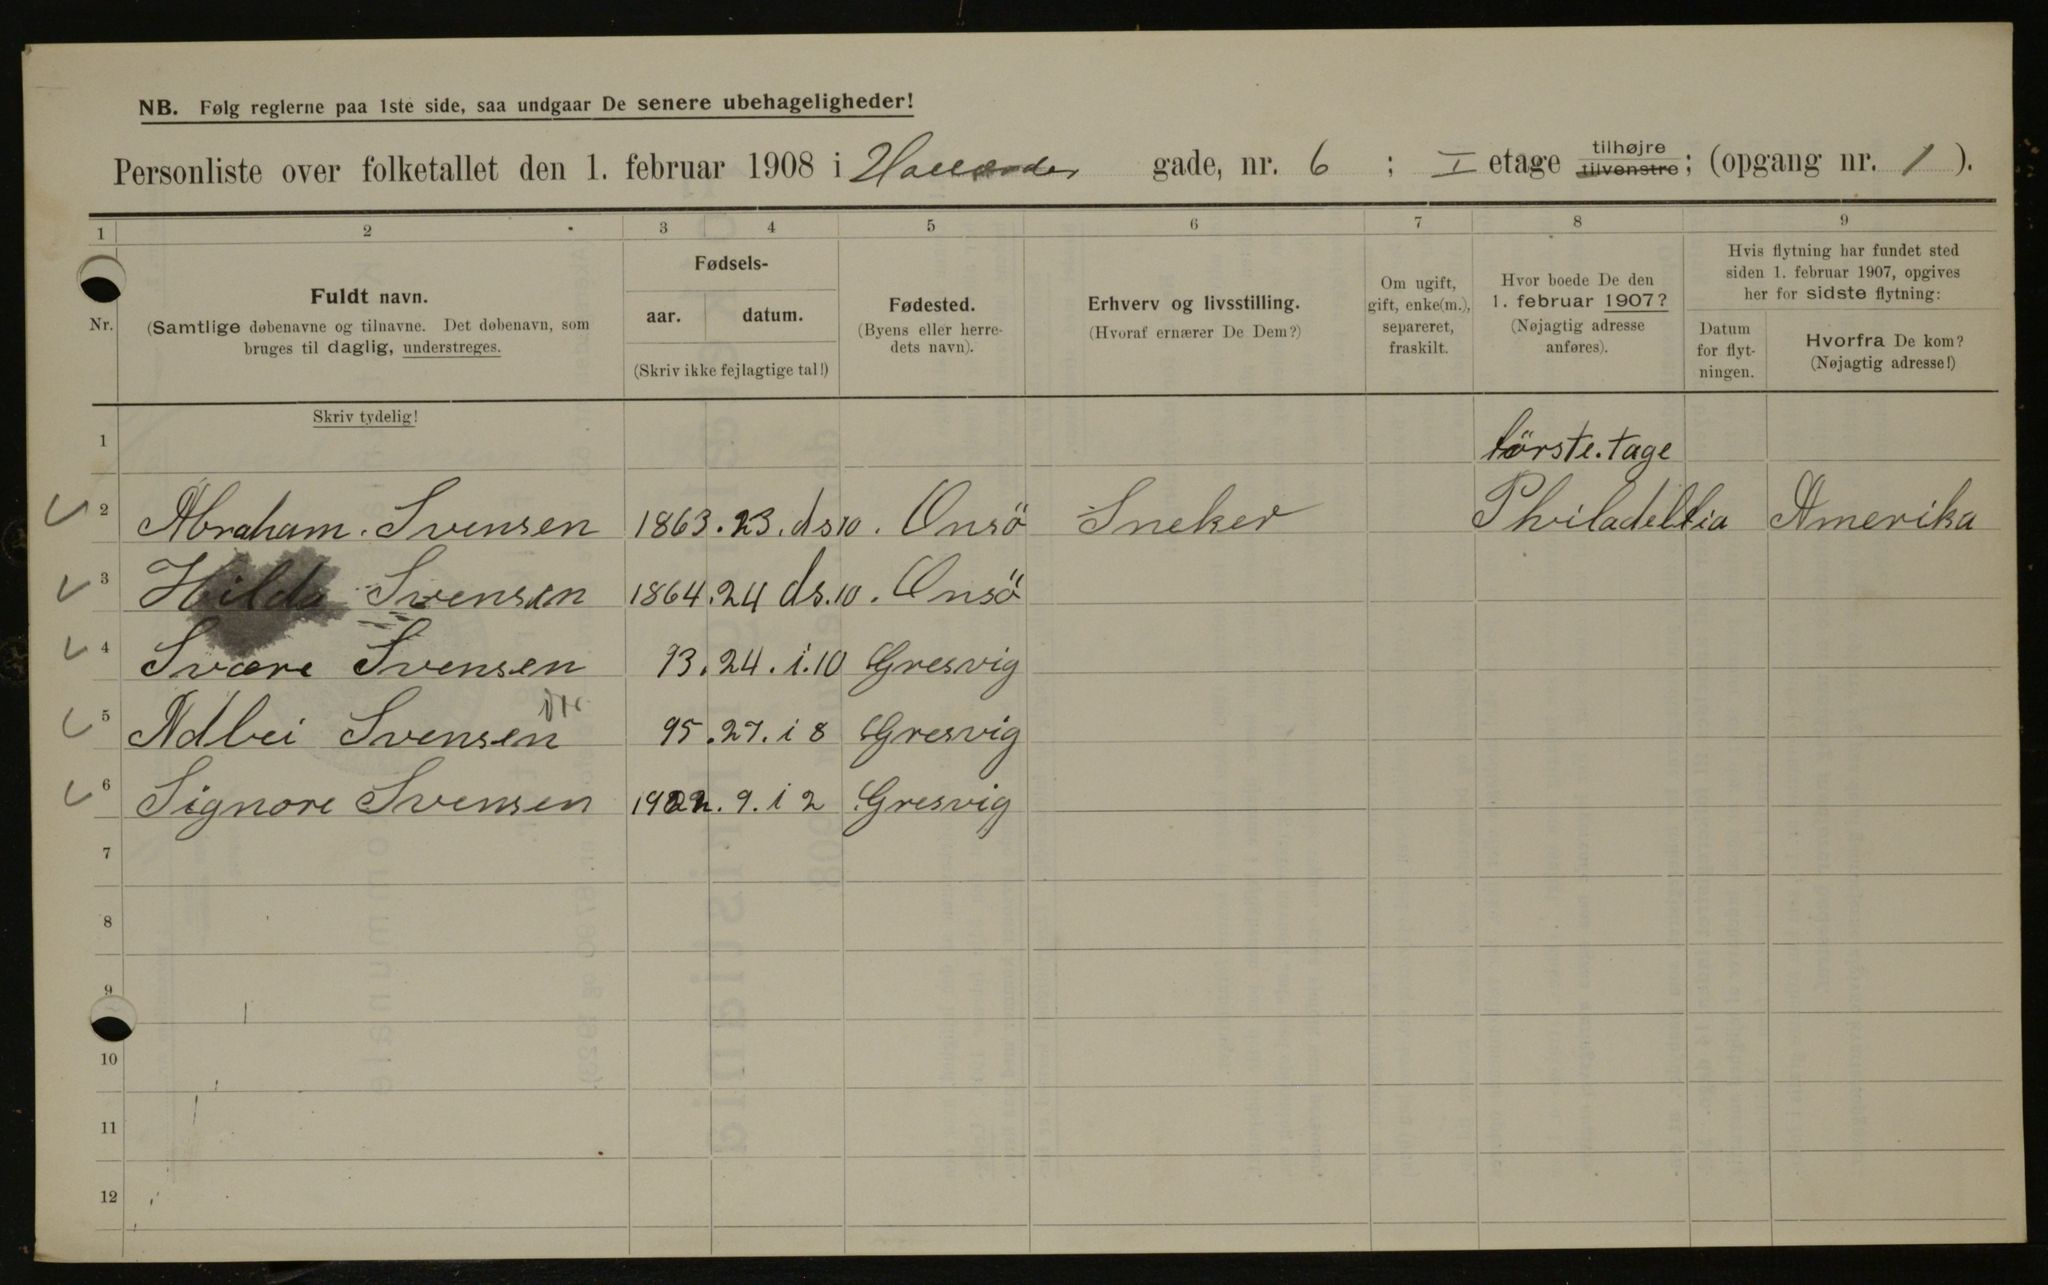 NB. Følg reglerne paa 1ste side, saa undgaar De senere ubehageligheder!
Personliste over folketallet den 1. februar 1908 i Hollænder gade, nr. 6 ; I etage tilhøjre tilvenstre; (opgang nr. 1 ).
1 2 3 4 5 6 7 8 9
Nr.
Fuldt navn.
(Samtlige døbenavne og tilnavne. Det døbenavn, som
bruges til daglig, understreges.
Fødsels-
aar. datum.
(Skriv ikke fejlagtige tal!)
Fødested.
(Byens eller herre-
dets navn).
Erhverv og livsstilling.
(Hvoraf ernærer De Dem?)
Om ugift,
gift, enke(m.),
separeret,
fraskilt.
Hvor boede De den
1. februar 1907?
(Nøjagtig adresse
anføres).
Hvis flytning har fundet sted
siden 1. februar 1907, opgives
her for sidste flytning:
Datum
for flyt-
ningen.
Hvorfra De kom?
(Nøjagtig adresse!)
Skriv tydelig!
1 förste. tage
2 Abraham. Svensen 1863. 23. ds 10. Onsö Sneker Philadelfia Amerika
3 Hilda Svensen 1864. 24 ds. 10. Onsö
4 Svære Svensen 93. 24. i. 10 Gresvig
5 Adbei Svensen 95. 27. i 8 Gresvig
6 Signore Svensen 1902. 9. i 2 Gresvig
7
8
9
10
11
12